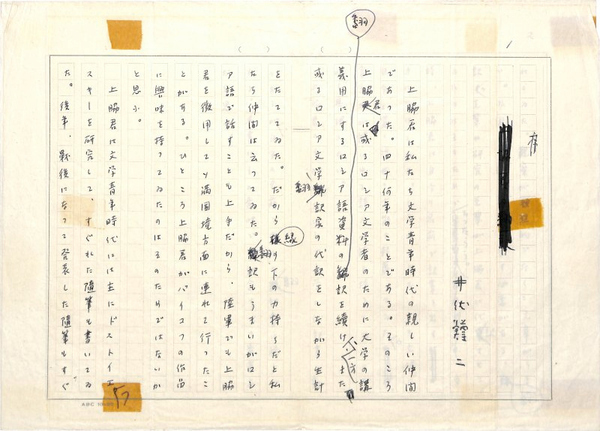 序
井伏鱒二
上脇君は私たち文学青年時代の親しい仲間
であった。四十何年のことである。そのころ
上脇君は或るロシア文学者のために大学の講
義用にするロシア語資料の翻訳を続け、また一方
或るロシア文学翻訳家の代訳をしながら生計
をたててゐた。だから縁の下の力持ちだと私
たち仲間は云ってゐた。翻訳もうまいがロシ
ア語で話すことも上手だから、陸軍でも上脇
君を徴用して満国境方面に連れて行ったこ
とがある。ひところ上脇君がバイコフの作品
に興味を持ってゐたのはそのためではないか
と思ふ。
上脇君は文学青年時代には主にドストイエ
スキーを研究して、すぐれた随筆も書いてゐ
た。後年、戦後になって発表した随筆もすぐ